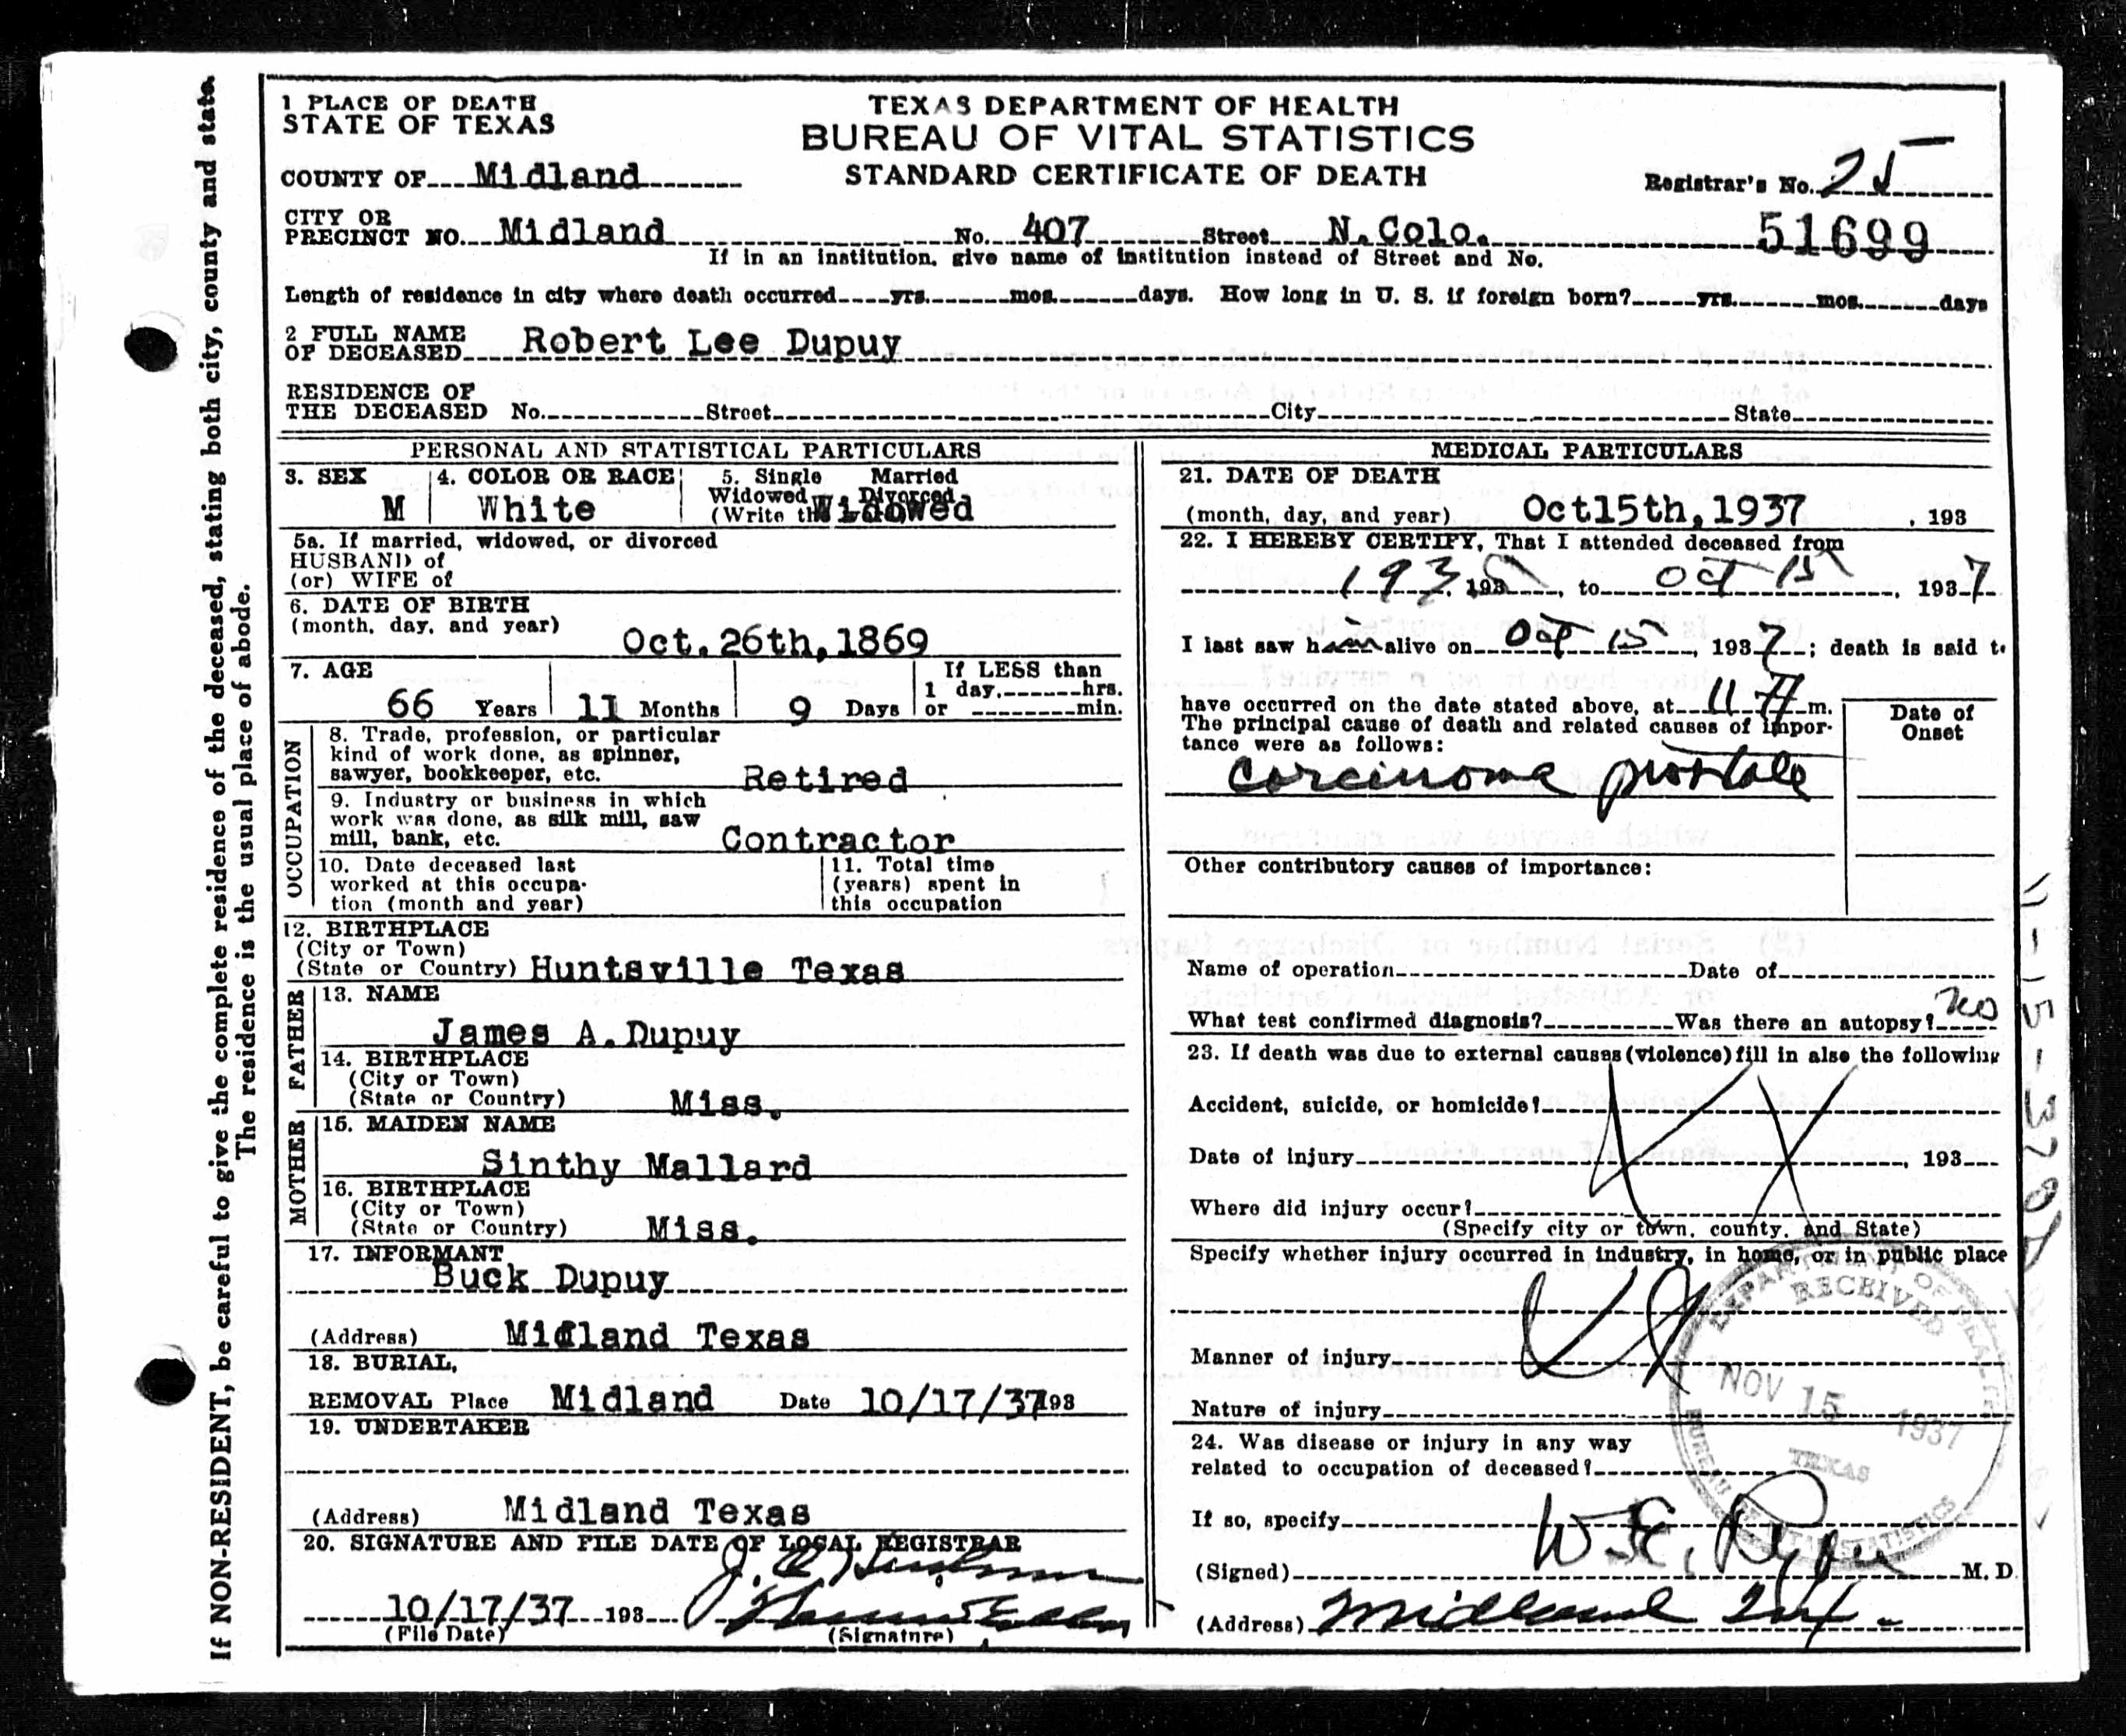 If NON-RESIDENT, be careful to give the complete residence of the deceased, stating both city, county and state.
The residence is the usual place of abode.
1 PLACE OF DEATH
STATE OF TEXAS
TEXAS DEPARTMENT OF HEALTH
BUREAU OF VITAL STATISTICS
STANDARD CERTIFICATE OF DEATH
COUNTY OF Midland
Registrar's No. 25
CITY OR
PRECINCT NO. Midland No. 407 Street N.Colo.
51699
If in an institution, give name of institution instead of Street and No.
Length of residence in city where death occurred yrs. mos. days. How long in U. S. if foreign born? yrs. mos. days
2 FULL NAME
OF DECEASED Robert Lee Dupuy
RESIDENCE OF
THE DECEASED No. Street City State
PERSONAL AND STATISTICAL PARTICULARS
3. SEX
M
4. COLOR OR RACE
White
5. Single Married
Widowed Divorced
(Write the Widowed
5a. If married, widowed, or divorced
HUSBAND of
(or) WIFE of
6. DATE OF BIRTH
(month, day, and year) Oct. 26th, 1869
7. AGE
66 Years 11 Months 9 Days
If LESS than
1 day, hrs.
or min.
OCCUPATION
8. Trade, profession, or particular
kind of work done, as spinner,
sawyer, bookkeeper, etc. Retired
9. Industry or business in which
work was done, as silk mill, saw
mill, bank, etc. Contractor
10. Date deceased last
worked at this occupa-
tion (month and year)
11. Total time
(years) spent in
this occupation
12. BIRTHPLACE
(City or Town)
(State or Country) Huntsville Texas
FATHER
13. NAME
James A. Dupuy
14. BIRTHPLACE
(City or Town)
(State or Country) Miss.
MOTHER
15. MAIDEN NAME
Sinthy Mallard
16. BIRTHPLACE
(City or Town)
(State or Country) Miss.
17. INFORMANT
Buck Dupuy
(Address) Midland Texas
18. BURIAL,
REMOVAL Place Midland Date 10/17/37 193
19. UNDERTAKER
(Address) Midland Texas
20. SIGNATURE AND FILE DATE OF LOCAL REGISTRAR
10/17/37 193
(File Date) (Signature)
MEDICAL PARTICULARS
21. DATE OF DEATH
(month, day, and year) Oct15th,1937 , 193
22. I HEREBY CERTIFY, That I attended deceased from
193 , to Oct 15 , 1937
I last saw him alive on Oct 15 , 1937 ; death is said to
have occurred on the date stated above, at 11 A m.
The principal cause of death and related causes of impor-
tance were as follows:
Date of
Onset
Carcinoma prostate
Other contributory causes of importance:
Name of operation Date of
What test confirmed diagnosis? Was there an autopsy? no
23. If death was due to external causes (violence) fill in also the following
Accident, suicide, or homicide?
Date of injury , 193
Where did injury occur?
(Specify city or town, county, and State)
Specify whether injury occurred in industry, in home, or in public place
Manner of injury
Nature of injury
24. Was disease or injury in any way
related to occupation of deceased?
If so, specify
(Signed) M. D.
(Address) Midland Tex.
DEPARTMENT OF HEALTH
RECEIVED
NOV 15 1937
TEXAS
BUREAU OF VITAL STATISTICS